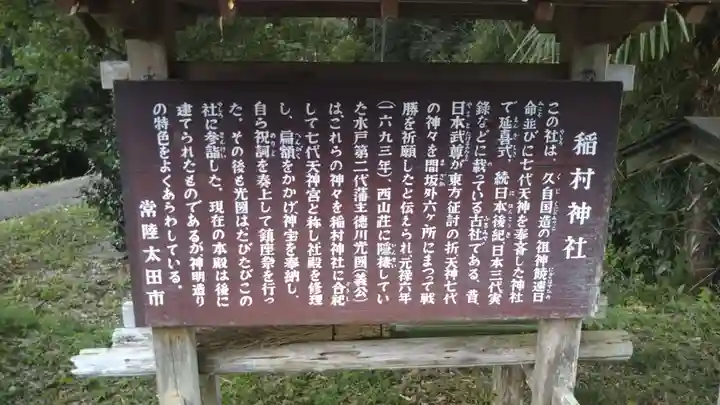 稲村神社
この社は、久自国造の祖神饒速日
命並びに七代天神を奉斎した神社
で延喜式、続日本後紀日本三代実
録などに載っている古社である、昔、
日本武尊が東方征討の折天神七代
の神々を間坂外六ヶ所にまつって戦
勝を祈願したと伝えられ元禄六年
(一六九三年)、西山荘に隠棲してい
た水戸第二代藩主徳川光圀(義公)
はこれらの神々を稲村神社に合祀
して七代天神宮と称し社殿を修理
し、扁額をかかげ神宝を奉納し、
自ら祝詞を奏上して鎮座祭を行っ
た。その後も光圀はたびたびこの
社に参詣した。現在の本殿は後に
建てられたものであるが神明造り
の特色をよくあらわしている。
常陸太田市